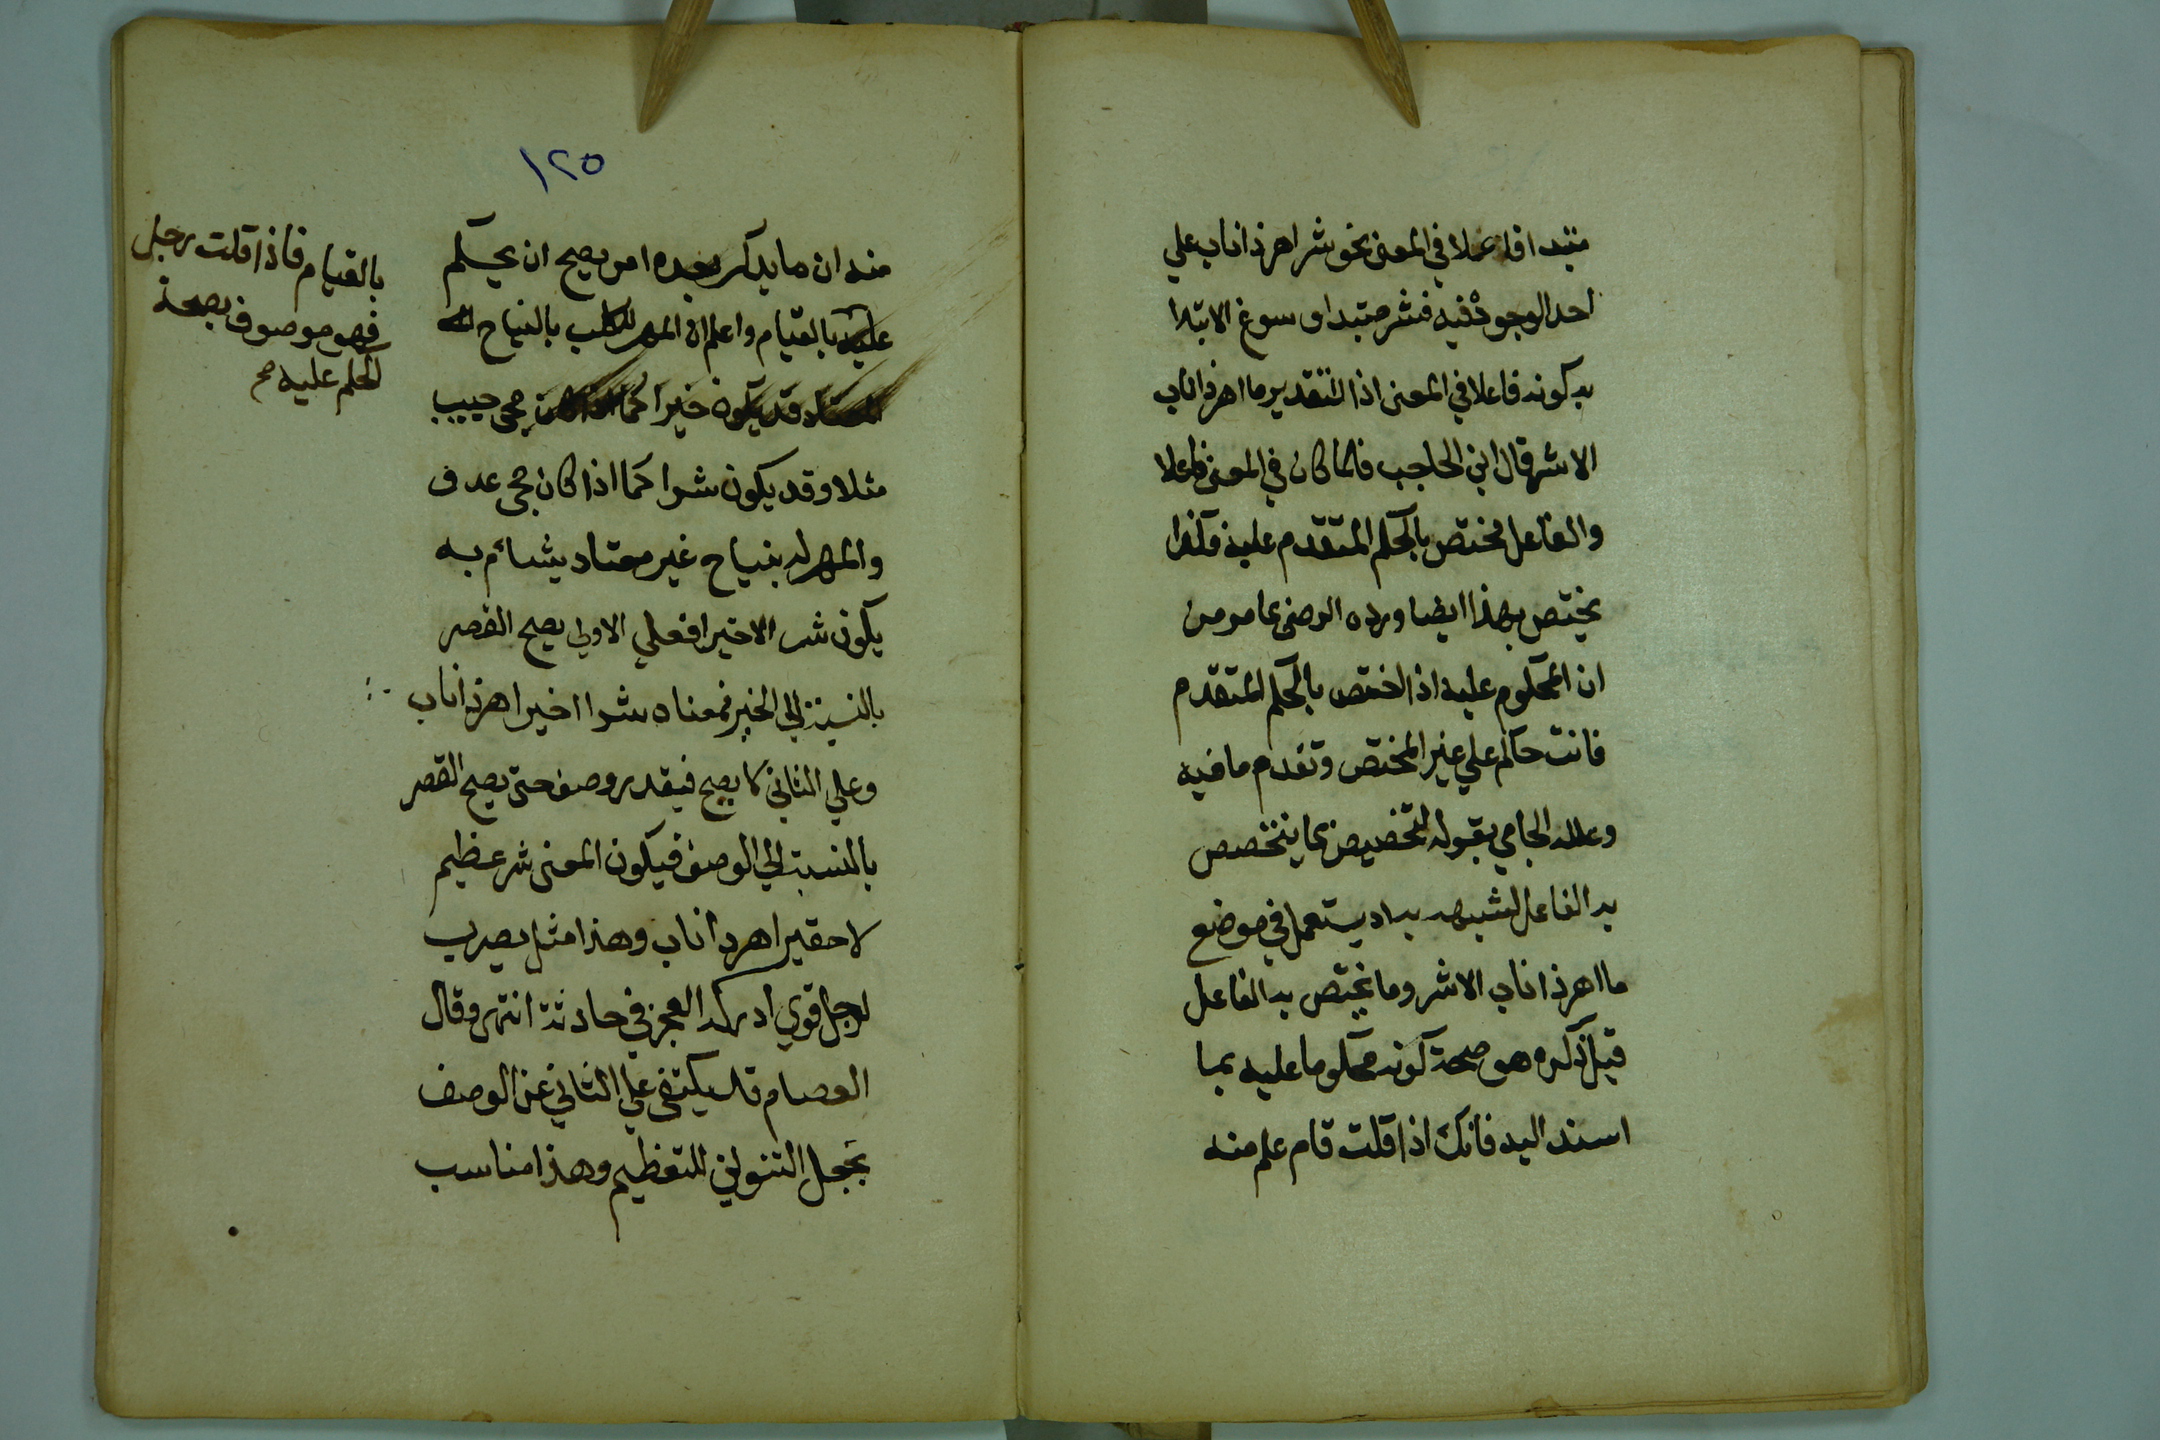 مبتدا فاعلا في المعنى نحو شر اهر ذا ناب علي
احد الوجوه فيه فشر مبتدا وسوغ الابتدا
به كونه فاعلا في المعنى اذ التقدير ما اهر ذا ناب
الا شر قال ابن الحاجب فلما كان في المعنى فاعلا
والفاعل مختص بالحكم المتقدم عليه فكذا
يختص بهذا ايضا ورده الرضى بما مر من
ان المحكوم عليه اذا اختص بالحكم المتقدم
فانت حاكم علي غير المختص وتقدم ما فيه
وعلله الجامي بقوله لتخصيص بما يتخصص
به الفاعل لشبهه به اد يستعمل في موضع
ما اهر ذا ناب الا شر وما يختص به الفاعل
قبل ذكره هو صحة كونه محكوما عليه بما
اسند اليه فانك اذا قلت قام علم منه
١٢٥
منه ان ما يذكر بعده امر يصح ان يحكم
عليه بالقيام واعلم ان المهر للكلب بالنباح
قد يكون خيرا كما اذا كان مجي حبيب
مثلا وقد يكون شرا كما اذا كان مجي عدو
والمهر له بنباح غير معتاد يتشائم به
يكون شر الا خيرا فعلي الاولي يصح القصر
بالنسبة الي الخير فمعناه شر لا خير اهر ذا ناب
وعلي الثاني لا يصح فيقدر وصف حتى يصح القصر
بالنسبة الي الوصف فيكون المعنى شر عظيم
لا حقير اهر ذا ناب وهذا مثل يضرب
لرجل قوي ادركه العجز في حادثة انتهى وقال
العصام قد يكتفى علي الثاني عن الوصف
بجعل التنوين للتعظيم وهذا مناسب
بالقيام فاذا قلت رجل
فهو موصوف بصحة
الحكم عليه صح